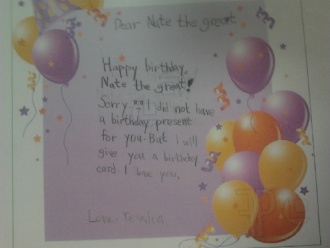 Dear Nate the great
Happy birthday,
Nate the great!
Sorry I did not have
a birthday present
for you. But I will
give you a birthday
card. I love you.